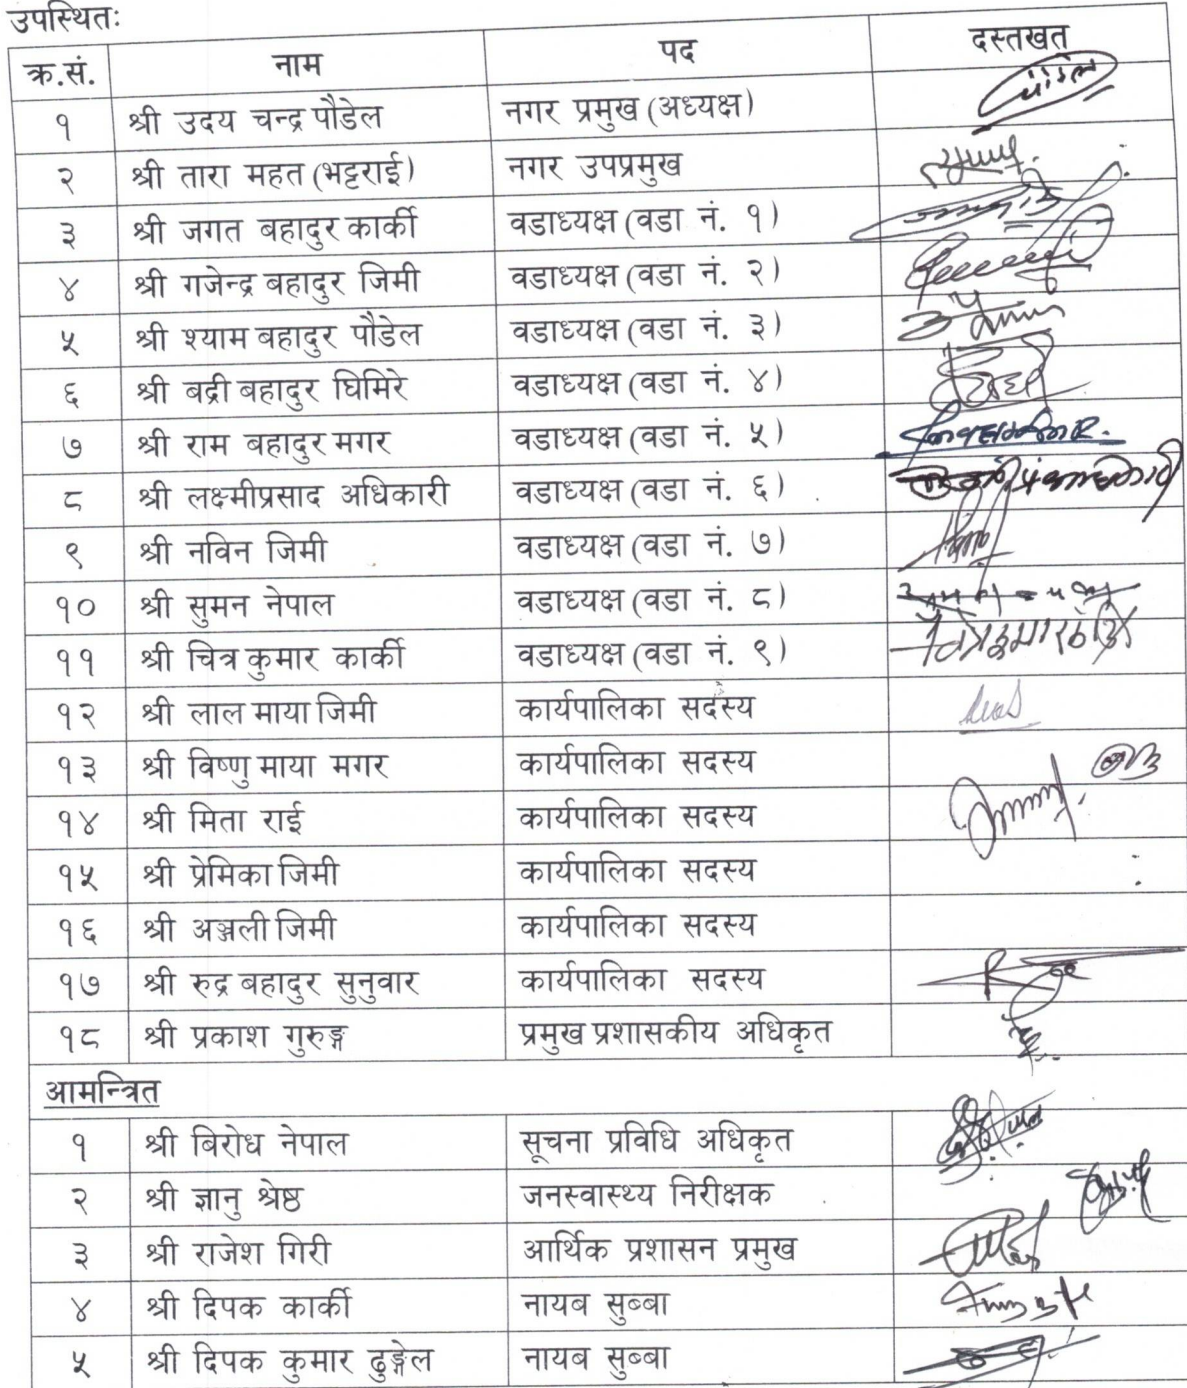 उपस्थितः
क्र.सं. नाम पद दस्तखत
१ श्री उदय चन्द्र पौडेल नगर प्रमुख (अध्यक्ष)
२ श्री तारा महत (भट्टराई) नगर उपप्रमुख
३ श्री जगत बहादुर कार्की वडाध्यक्ष (वडा नं. १)
४ श्री गजेन्द्र बहादुर जिमी वडाध्यक्ष (वडा नं. २)
५ श्री श्याम बहादुर पौडेल वडाध्यक्ष (वडा नं. ३)
६ श्री बद्री बहादुर घिमिरे वडाध्यक्ष (वडा नं. ४)
७ श्री राम बहादुर मगर वडाध्यक्ष (वडा नं. ५)
८ श्री लक्ष्मीप्रसाद अधिकारी वडाध्यक्ष (वडा नं. ६)
९ श्री नविन जिमी वडाध्यक्ष (वडा नं. ७)
१० श्री सुमन नेपाल वडाध्यक्ष (वडा नं. ८)
११ श्री चित्र कुमार कार्की वडाध्यक्ष (वडा नं. ९)
१२ श्री लाल माया जिमी कार्यपालिका सदस्य
१३ श्री विष्णु माया मगर कार्यपालिका सदस्य
१४ श्री मिता राई कार्यपालिका सदस्य
१५ श्री प्रेमिका जिमी कार्यपालिका सदस्य
१६ श्री अञ्जली जिमी कार्यपालिका सदस्य
१७ श्री रुद्र बहादुर सुनुवार कार्यपालिका सदस्य
१८ श्री प्रकाश गुरुङ्ग प्रमुख प्रशासकीय अधिकृत
आमन्त्रित
१ श्री बिरोध नेपाल सूचना प्रविधि अधिकृत
२ श्री ज्ञानु श्रेष्ठ जनस्वास्थ्य निरीक्षक
३ श्री राजेश गिरी आर्थिक प्रशासन प्रमुख
४ श्री दिपक कार्की नायब सुब्बा
५ श्री दिपक कुमार ढुङ्गेल नायब सुब्बा